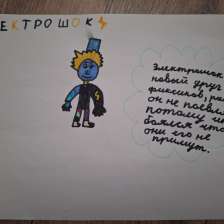 ЕКТРОШОК
Электрошок
новый друг
фиксиков, ра
он не появл
потому ч
боялся что
они его не
примут.